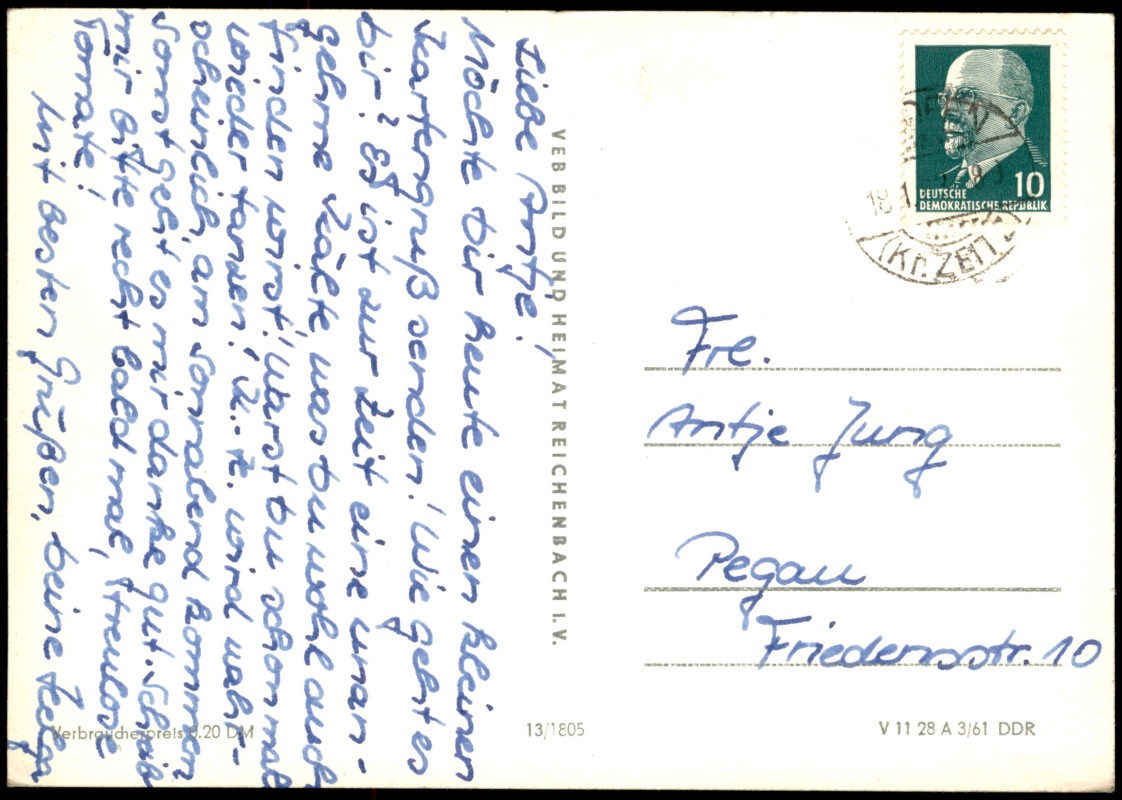 Liebe Antje!
Möchte dir heute einen kleinen
Kartengruß senden! Wie geht es
dir? Es ist zur Zeit eine unan-
gehme Kälte was du wohl auch
finden wirst! Warst du schon mal
wieder tanzen? K.-H. wird wahr-
scheinlich am Sonnabend kommen
Sonst geht es mir danke gut. Schreib
mir bitte recht bald mal, treulose
Tomate!
Mit besten Grüßen, deine Helga
VEB BILD UND HEIMAT REICHENBACH I. V.
DEUTSCHE 10
DEMOKRATISCHE REPUBLIK
18.1.
(Kr. ZEITZ)
Frl.
Antje Jung
Pegau
Friedensstr. 10
Verbraucherpreis 0.20 DM
13/1805
V 11 28 A 3/61 DDR